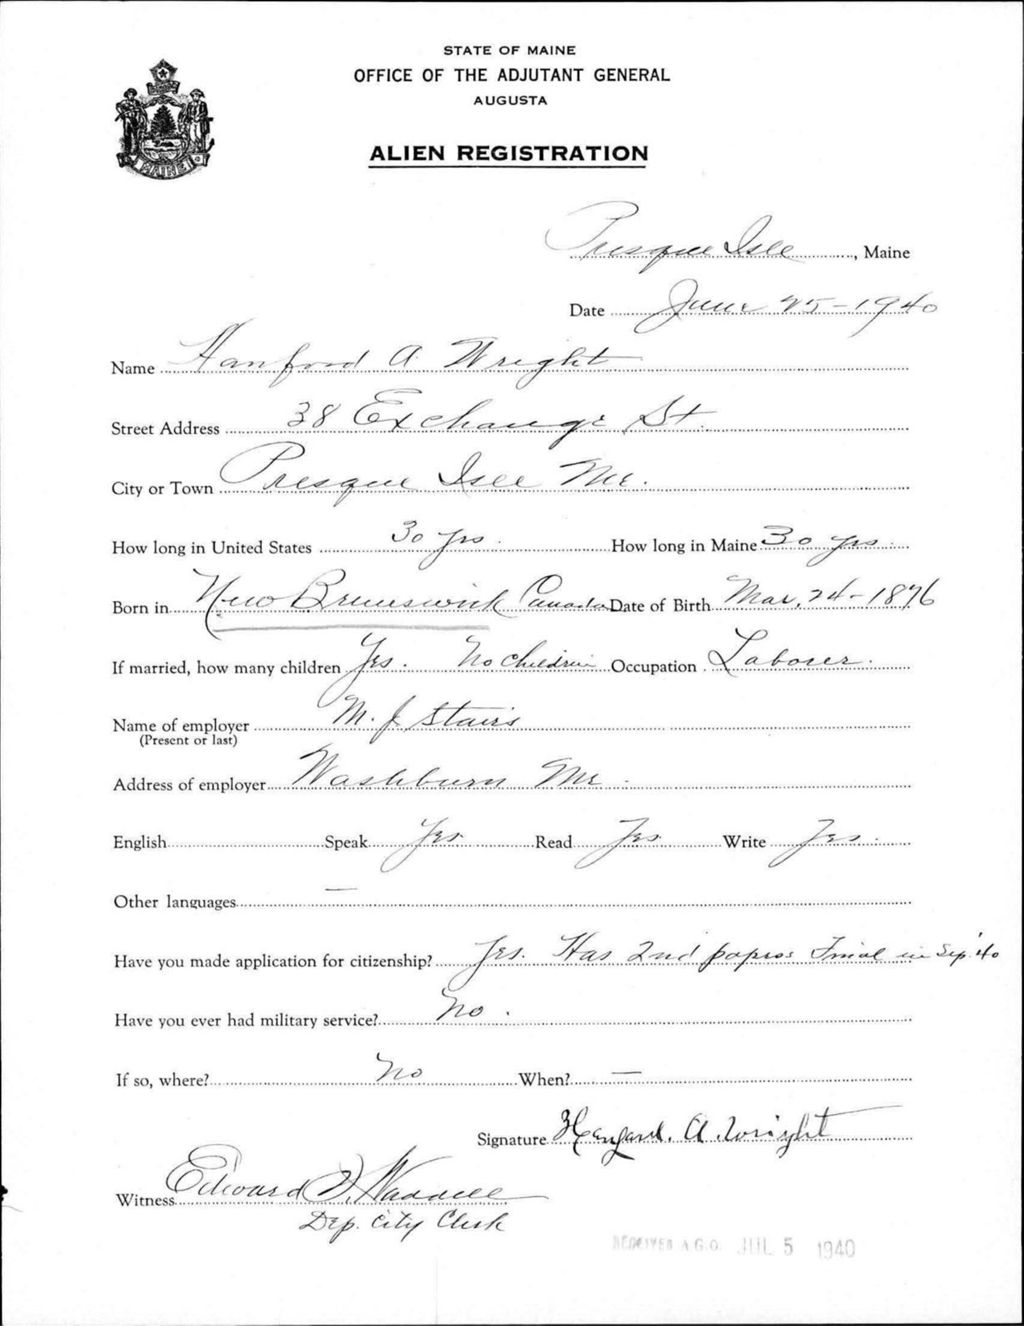 STATE OF MAINE
OFFICE OF THE ADJUTANT GENERAL
AUGUSTA
ALIEN REGISTRATION
MAINE
Presque Isle, Maine
Date June 25-1940
Name Hanford A Wright
Street Address 38 Exchange St.
City or Town Presque Isle Me.
How long in United States 30 yrs. How long in Maine 30 yrs
Born in New Brunswick Canada Date of Birth Mar, 24-1876
If married, how many children Yes. No Children Occupation Laborer.
Name of employer M. J Stairs
(Present or last)
Address of employer Washburn Me.
English Speak Yes. Read Yes. Write Yes.
Other languages —
Have you made application for citizenship? Yes. Has 2nd papers Final in Sep '40
Have you ever had military service? No.
If so, where? No When? —
Signature A. Wright
Witness Edward Waddell
Dep. City Clerk
RECEIVED A.G.O. JUL 5 1940